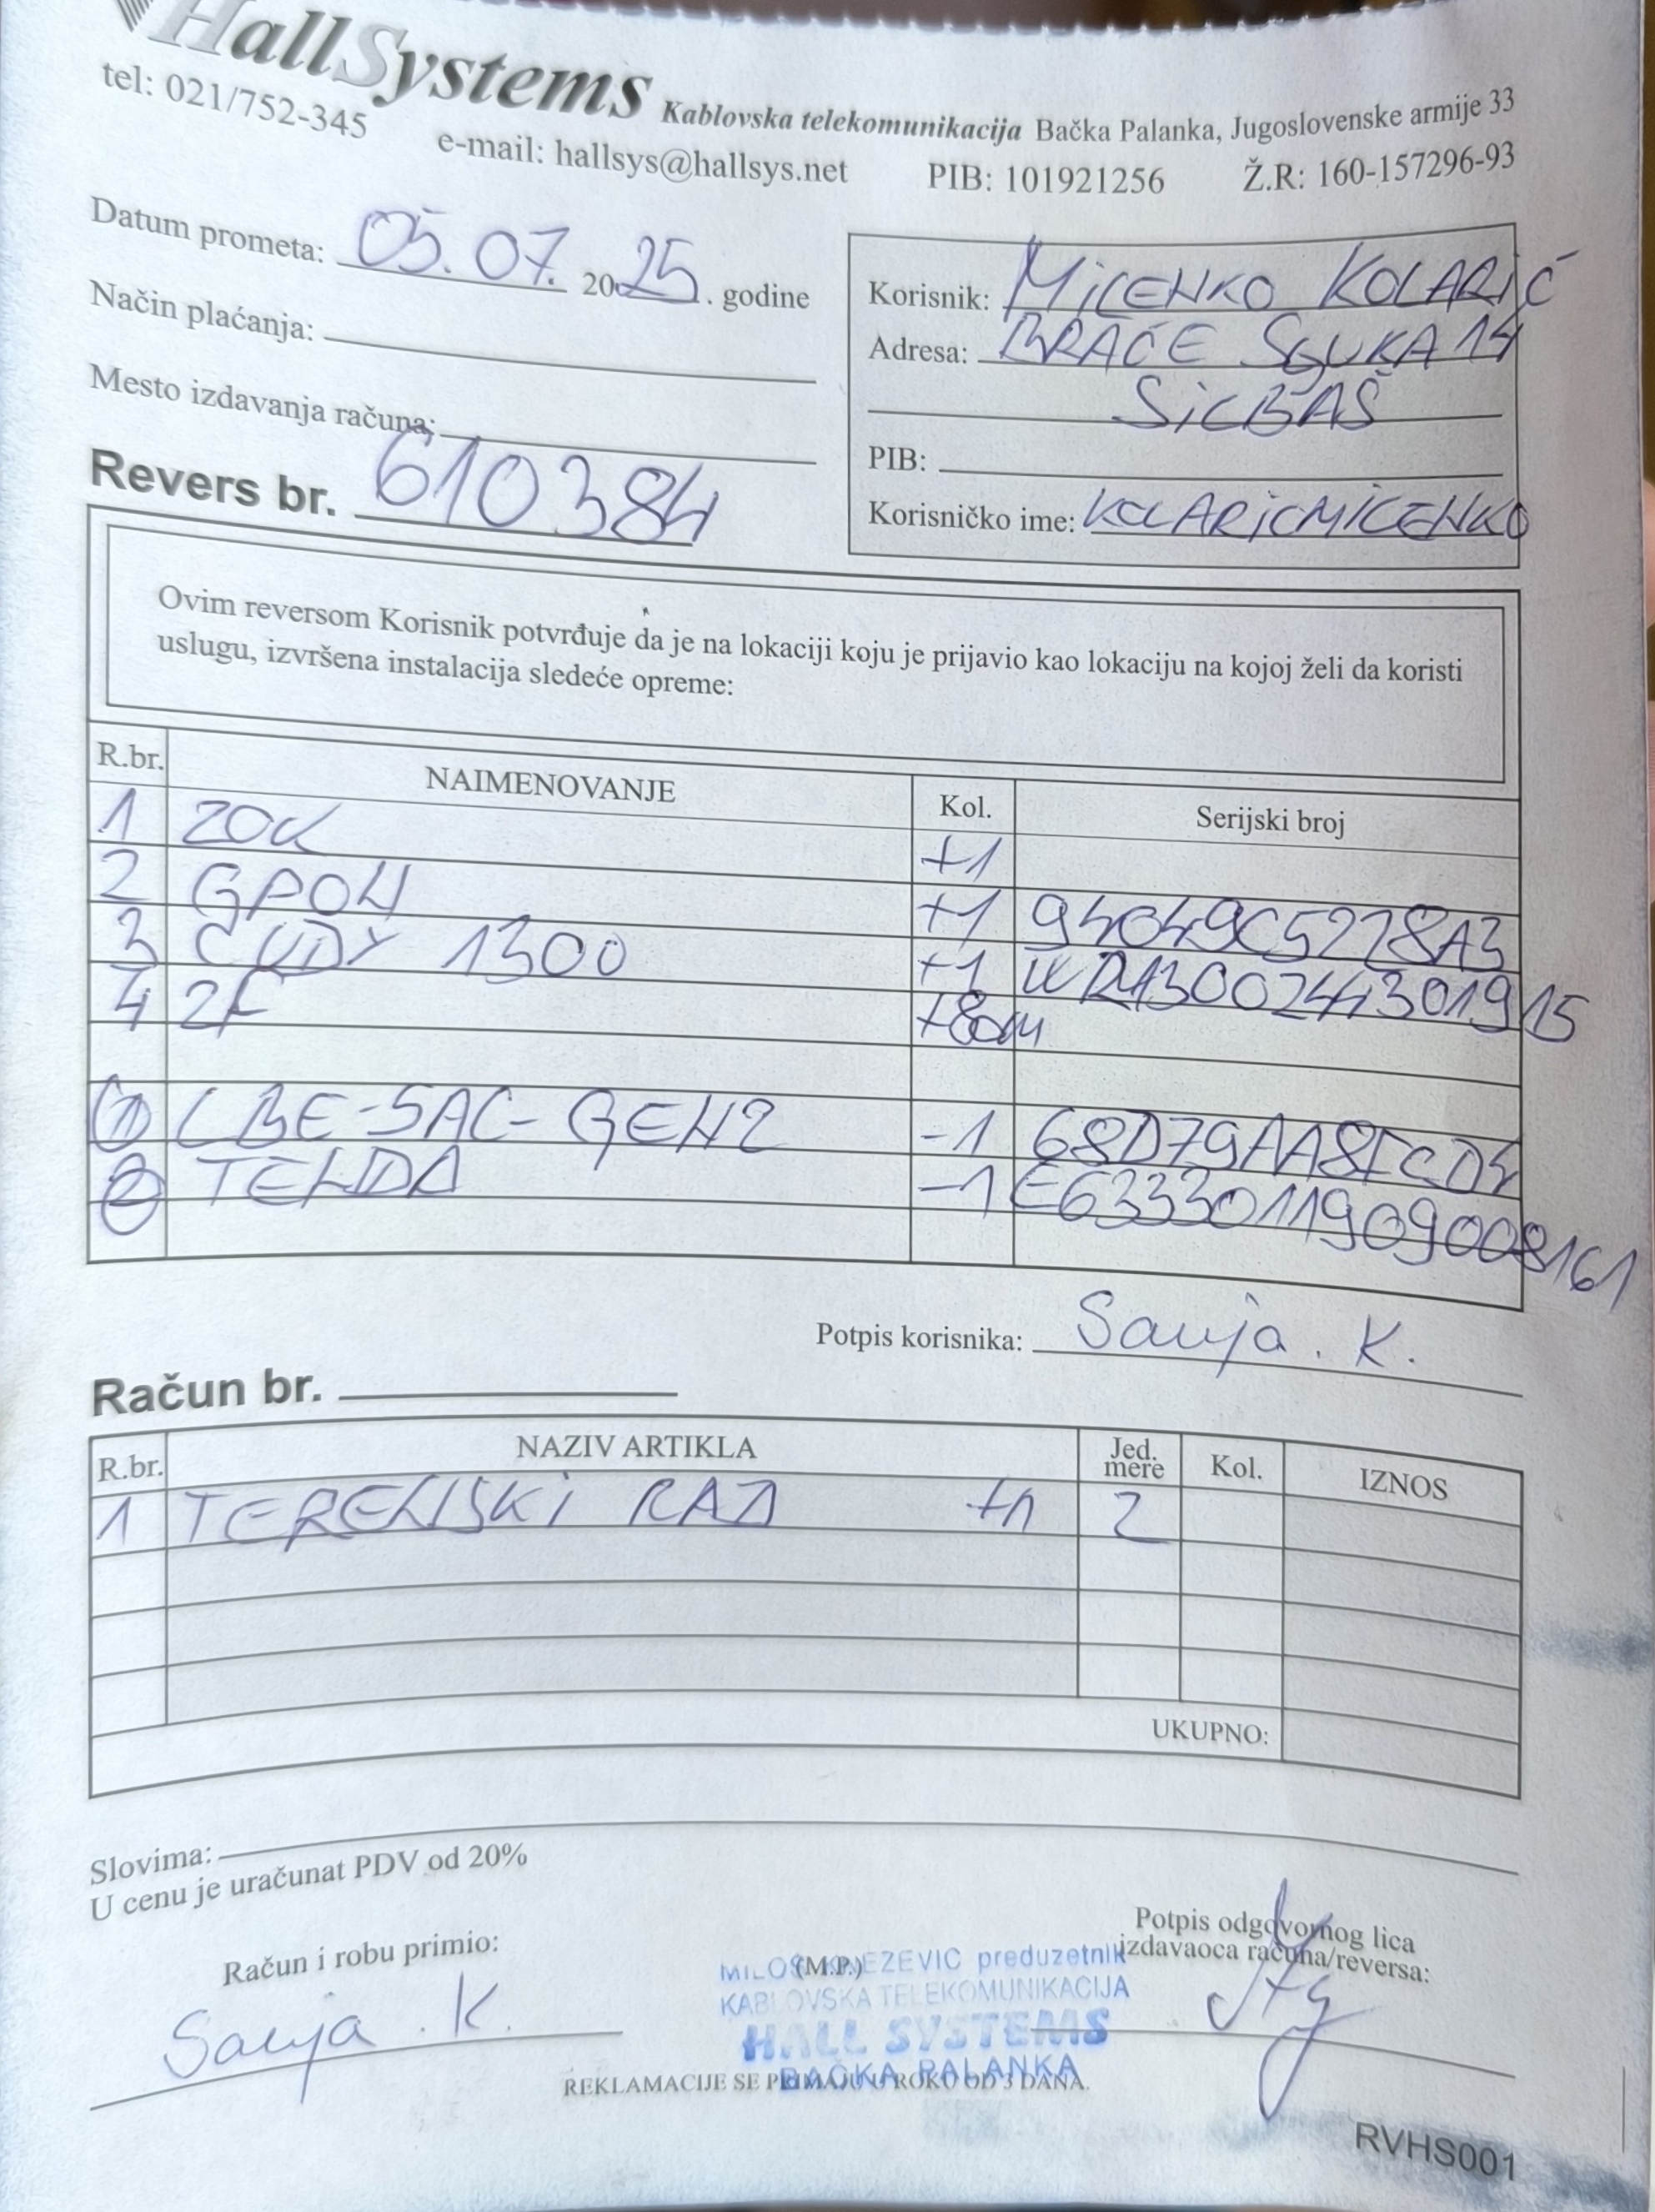 HallSystems Kablovska telekomunikacija Bačka Palanka, Jugoslovenske armije 33
tel: 021/752-345 e-mail: hallsys@hallsys.net PIB: 101921256 Ž.R: 160-157296-93
Datum prometa: 05.07. 2025. godine
Način plaćanja:
Mesto izdavanja računa:
Revers br. 610384
Korisnik: MILENKO KOLARIĆ
Adresa: BRAĆE 14
SILBAŠ
PIB:
Korisničko ime: KOLARICMILENKO
Ovim reversom Korisnik potvrđuje da je na lokaciji koju je prijavio kao lokaciju na kojoj želi da koristi
uslugu, izvršena instalacija sledeće opreme:
R.br. NAIMENOVANJE Kol. Serijski broj
1 ZOK +1
2 GPON +1 94049C5228A3
3 CUDY 1300 +1 WR1300244301915
4 2F +80m
1 LBE-5AC-GEN2 -1 68D79AA8FCD4
2 TENDA -1 E6333011909008161
Potpis korisnika: Sanja. K.
Račun br.
R.br. NAZIV ARTIKLA Jed. mere Kol. IZNOS
1 TERENSKI RAD +h 2
UKUPNO:
Slovima:
U cenu je uračunat PDV od 20%
Račun i robu primio:
Sanja. K.
(M.P.)
MILOŠ KNEZEVIC preduzetnik
KABLOVSKA TELEKOMUNIKACIJA
HALL SYSTEMS
BAČKA PALANKA
Potpis odgovornog lica
izdavaoca računa/reversa:
REKLAMACIJE SE PRIMAJU U ROKU OD 3 DANA.
RVHS001